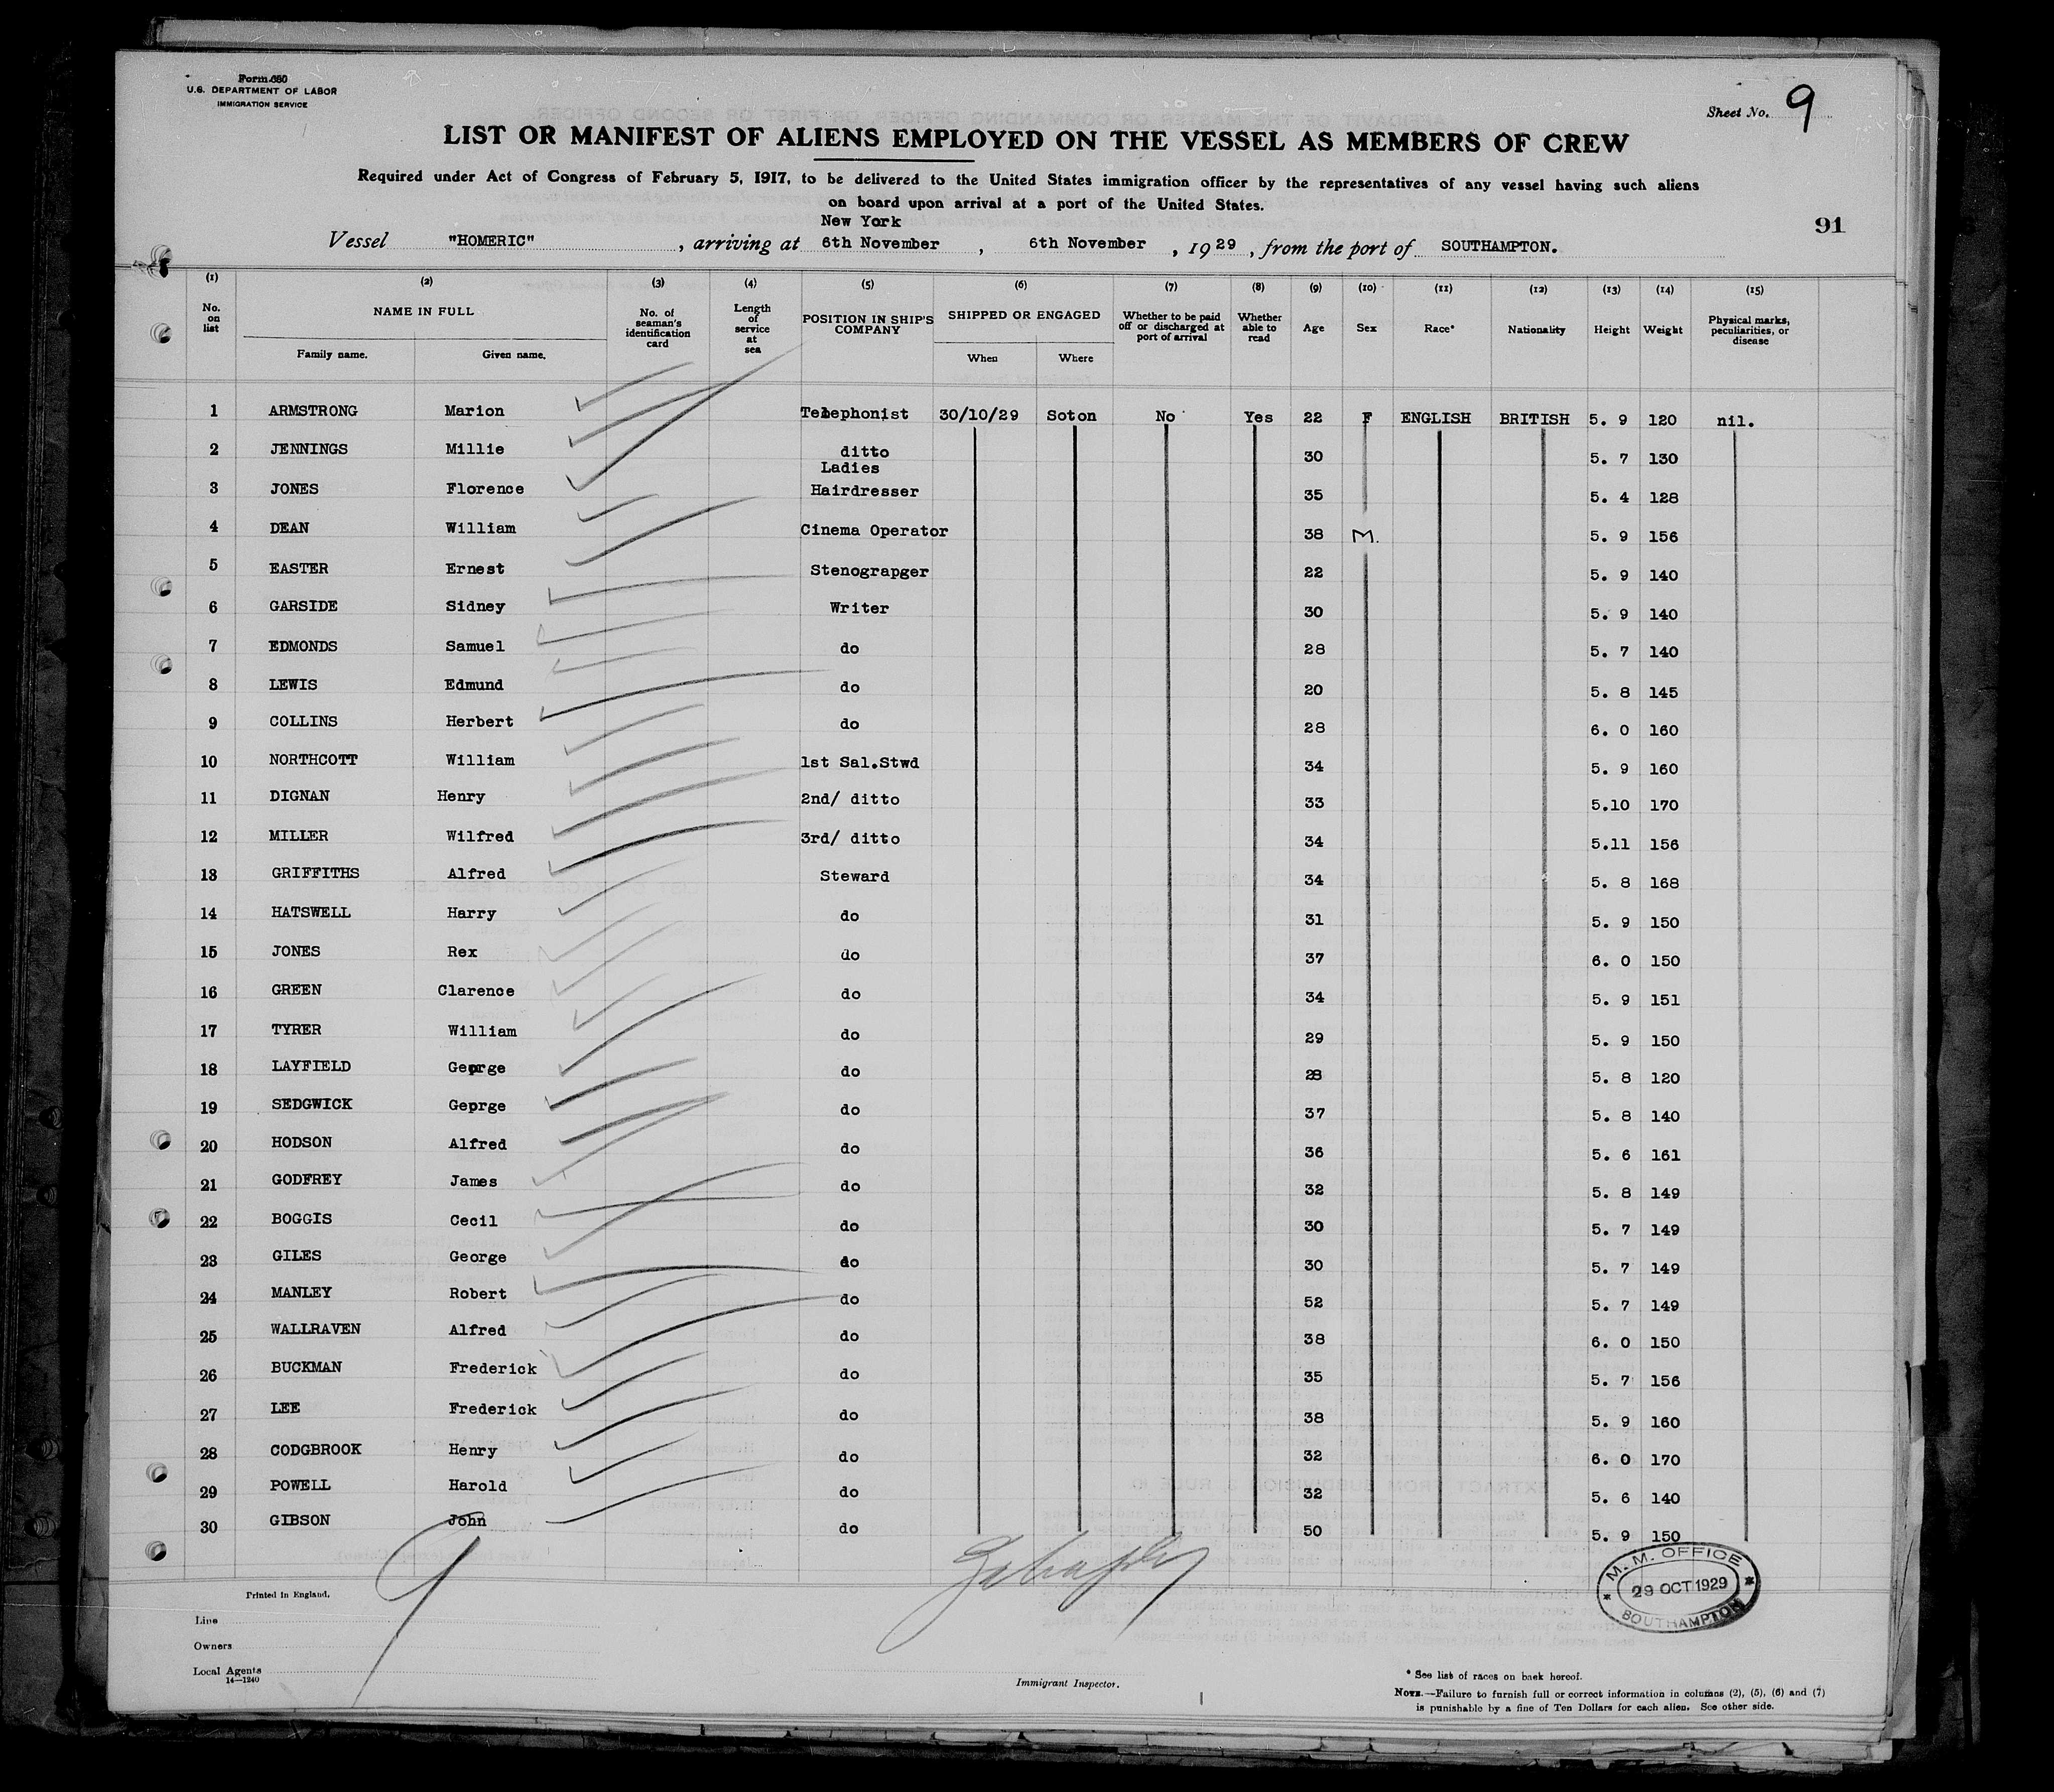 Form 680
U.S. DEPARTMENT OF LABOR
IMMIGRATION SERVICE
Sheet No. 9
LIST OR MANIFEST OF ALIENS EMPLOYED ON THE VESSEL AS MEMBERS OF CREW
Required under Act of Congress of February 5, 1917, to be delivered to the United States immigration officer by the representatives of any vessel having such aliens
on board upon arrival at a port of the United States.
91
New York
Vessel "HOMERIC", arriving at 6th November, 6th November, 1929, from the port of SOUTHAMPTON.
(1) (2) (3) (4) (5) (6) (7) (8) (9) (10) (11) (12) (13) (14) (15)
No. on list NAME IN FULL No. of seaman's identification card Length of service at sea POSITION IN SHIP'S COMPANY SHIPPED OR ENGAGED Whether to be paid off or discharged at port of arrival Whether able to read Age Sex Race* Nationality Height Weight Physical marks, peculiarities, or disease
Family name. Given name. When Where
1 ARMSTRONG Marion Telephonist 30/10/29 Soton No Yes 22 F ENGLISH BRITISH 5. 9 120 nil.
2 JENNINGS Millie ditto 30 5. 7 130
3 JONES Florence Ladies Hairdresser 35 5. 4 128
4 DEAN William Cinema Operator 38 M. 5. 9 156
5 EASTER Ernest Stenograpger 22 5. 9 140
6 GARSIDE Sidney Writer 30 5. 9 140
7 EDMONDS Samuel do 28 5. 7 140
8 LEWIS Edmund do 20 5. 8 145
9 COLLINS Herbert do 28 6. 0 160
10 NORTHCOTT William 1st Sal.Stwd 34 5. 9 160
11 DIGNAN Henry 2nd/ ditto 33 5.10 170
12 MILLER Wilfred 3rd/ ditto 34 5.11 156
13 GRIFFITHS Alfred Steward 34 5. 8 168
14 HATSWELL Harry do 31 5. 9 150
15 JONES Rex do 37 6. 0 150
16 GREEN Clarence do 34 5. 9 151
17 TYRER William do 29 5. 9 150
18 LAYFIELD George do 28 5. 8 120
19 SEDGWICK Geprge do 37 5. 8 140
20 HODSON Alfred do 36 5. 6 161
21 GODFREY James do 32 5. 8 149
22 BOGGIS Cecil do 30 5. 7 149
23 GILES George do 30 5. 7 149
24 MANLEY Robert do 52 5. 7 149
25 WALLRAVEN Alfred do 38 6. 0 150
26 BUCKMAN Frederick do 35 5. 7 156
27 LEE Frederick do 38 5. 9 160
28 CODGBROOK Henry do 32 6. 0 170
29 POWELL Harold do 32 5. 6 140
30 GIBSON John do 50 5. 9 150
9
M. M. OFFICE
29 OCT 1929
SOUTHAMPTON
Printed in England.
Line
Owners
Local Agents
14—1240
Immigrant Inspector.
* See list of races on back hereof.
NOTE.—Failure to furnish full or correct information in columns (2), (5), (6) and (7)
is punishable by a fine of Ten Dollars for each alien. See other side.